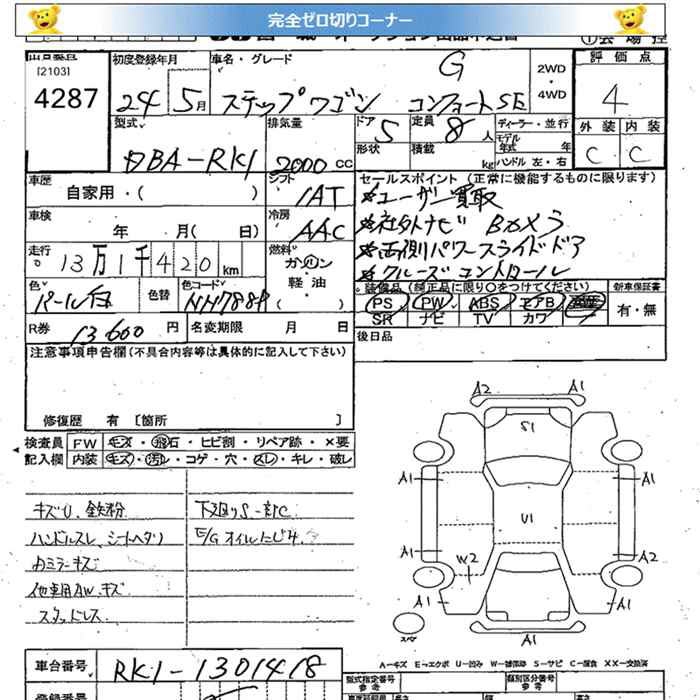 完全ゼロ切りコーナー
[2103]
4287
初度登録年月
24 5月
車名・グレード
G
ステップワゴン コンフォートSE
2WD
・
4WD
評価点
4
外装 内装
C C
型式
DBA-RK1
排気量
2000 CC
ドア
5
定員
8人
ディーラー・並行
モデル年式 年
形状
積載 kg
ハンドル 左・右
車歴
自家用・( )
シフト
IAT
車検
年 月( 日)
冷房
AAC
走行
13万1千420km
燃料
ガソリン
・
軽油
( )
セールスポイント (正常に機能するものに限ります)
*ユーザー買取
*社外ナビ Bカメラ
*両側パワースライドドア
*クルーズコントロール
色
パール白
色替
色コード
NH788P
装備品(純正品に限り○をつけてください)
PS PW ABS エアB
SR ナビ TV カワ
新車保証書
有・無
R券
13660円
名変期限 月 日
後日品
注意事項申告欄(不具合内容等は具体的に記入して下さい)
修復歴 有 [箇所 ]
検査員記入欄
FW キズ・飛石・ヒビ割・リペア跡・×要
内装 キズ・汚レ・コゲ・穴・スレ・キレ・破レ
キズU、鉄粉
ハンドルスレ、シートヘタリ
カミラーキズ
他車用AW、キズ
スタッドレス
下廻りS一部C
E/Gオイルにじみ
A2 A1
S1
A1 A1
U1
A1 A2
W2
A1 A1
スペア
A−キズ E−エクボ U−凹み W−補修跡 S−サビ C−腐食 XX−交換済
車台番号
RK1-1301418
型式指定番号
参考
類別区分番号
参考
登録番号
長さ 幅 高さ